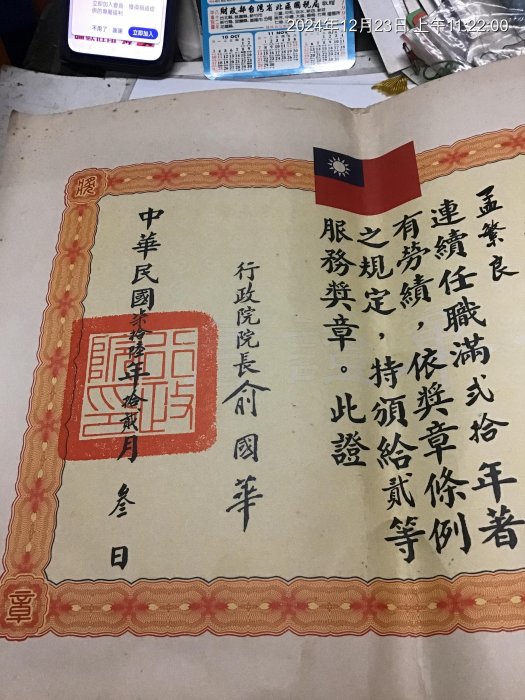 2024年12月23日 上午11:22:00
立即加入
財政部臺灣省北區國稅局
孟繁良
連續任職滿貳拾年著
有勞績，依獎章條例
之規定，特頒給貳等
服務獎章。此證
行政院院長俞國華
中華民國柒拾陸年拾貳月叁日
行政院印
獎
章